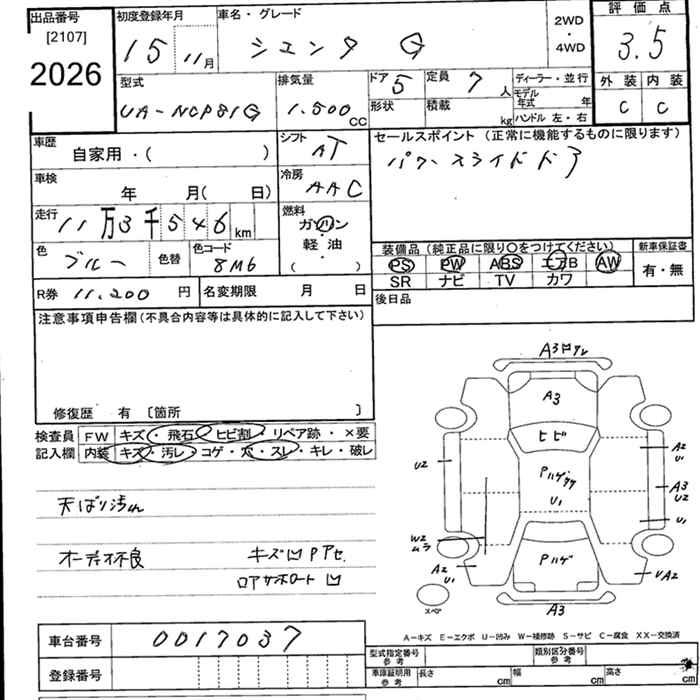 出品番号 初度登録年月 車名・グレード 2WD・4WD 評価点
[2107] 15 11月 シエンタ G 3.5
2026
型式 排気量 ドア 5 定員 7人 ディーラー・並行 外装 内装
UA-NCP81G 1.500cc 形状 積載 kg モデル年式 年 C C
ハンドル 左・右
車歴 シフト セールスポイント (正常に機能するものに限ります)
自家用・( ) AT パワースライドドア
車検 年 月( 日) 冷房 AAC
走行 11万3千546km 燃料 ガソリン・軽油 ( )
装備品 (純正品に限り〇をつけてください) 新車保証書
色 ブルー 色替 色コード 8M6 PS PW ABS エアB AW 有・無
SR ナビ TV カワ
R券 11,200円 名変期限 月 日 後日品
注意事項申告欄(不具合内容等は具体的に記入して下さい)
修復歴 有 〔箇所 〕
検査員 FW キズ・飛石・ヒビ割・リペア跡・×要
記入欄 内装 キズ・汚レ・コゲ・穴・スレ・キレ・破レ
天ばり汚れ
オーディオ不良 キズ凹Pアセ
ロアサポート凹
A3
A3
ヒビ
U2 A2
U1
Pハゲ
A3
U2
U1
U1
W2
ムラ
Pハゲ
A2
U1
UA2
スペア A3
A-キズ E-エクボ U-凹み W-補修跡 S-サビ C-腐食 XX-交換済
車台番号 0017037
型式指定番号 参考 類別区分番号 参考
登録番号 車庫証明用 参考 長さ cm 幅 cm 高さ cm